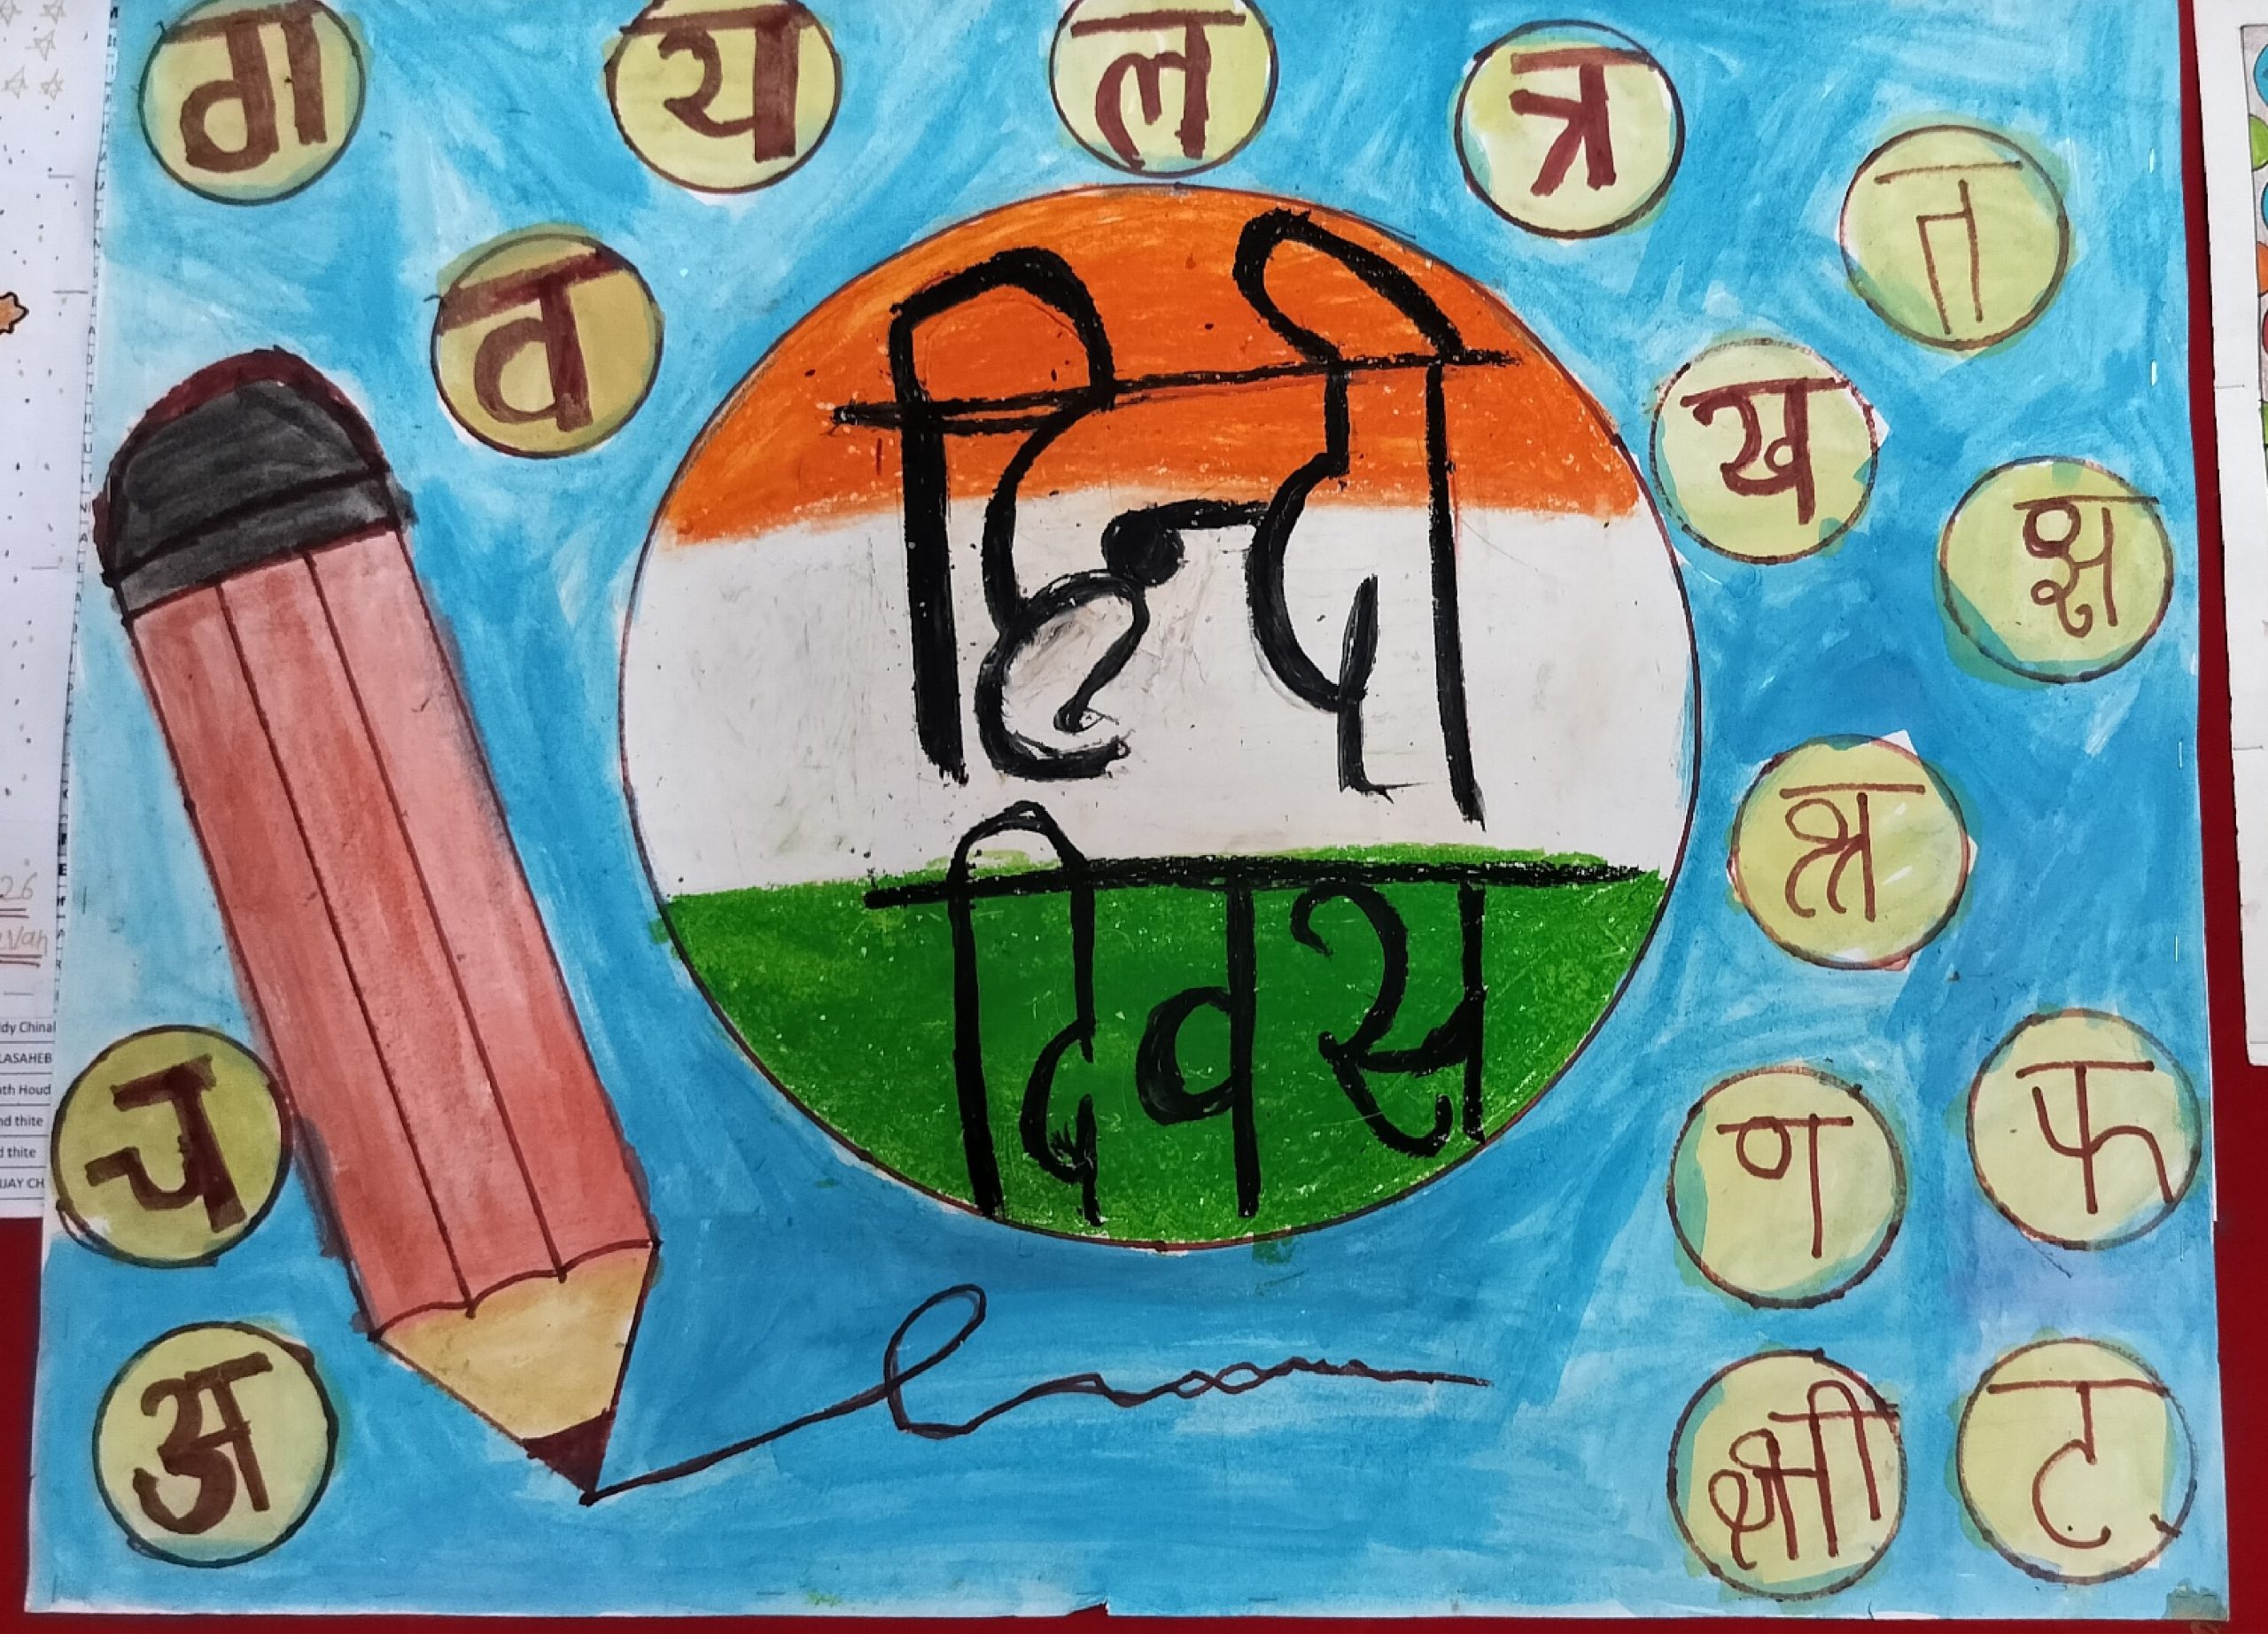 ग
य
ल
त्र
त
व
ख
क्ष
हिन्दी
दिवस
श्र
च
ण
फ
अ
श्री
ट
26
dy Chinal
LASAHEB
ath Houd
nd thite
d thite
IJAY CH